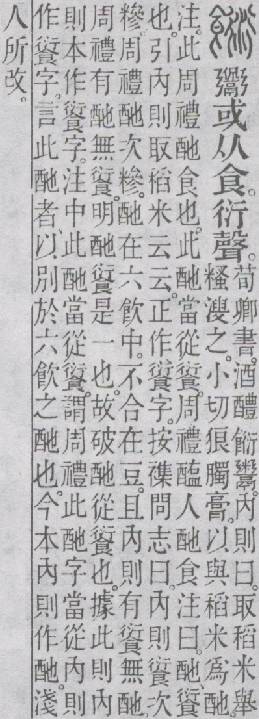 或从食。衍聲。
荀卿書。酒醴餰鬻。內則曰。取稻米舉
糔溲之。小切狼臅膏。以與稻米爲酏。
注。此周禮酏食也。此酏當從䭈。周禮醢人酏食注曰。酏䭈
也。引內則取稻米云云。正作䭈字。按雧問志曰。內則䭈次
糝。周禮酏次糝。酏在六飮中。不合在豆。且內則有䭈無酏
周禮有酏無䭈。明酏䭈是一也。故破酏從䭈也。據此則內
則本作䭈字。注中此酏當從䭈。謂周禮此酏字當從內則
作䭈字。言此酏者。以別於六飮之酏也。今本內則作酏。淺
人所改。